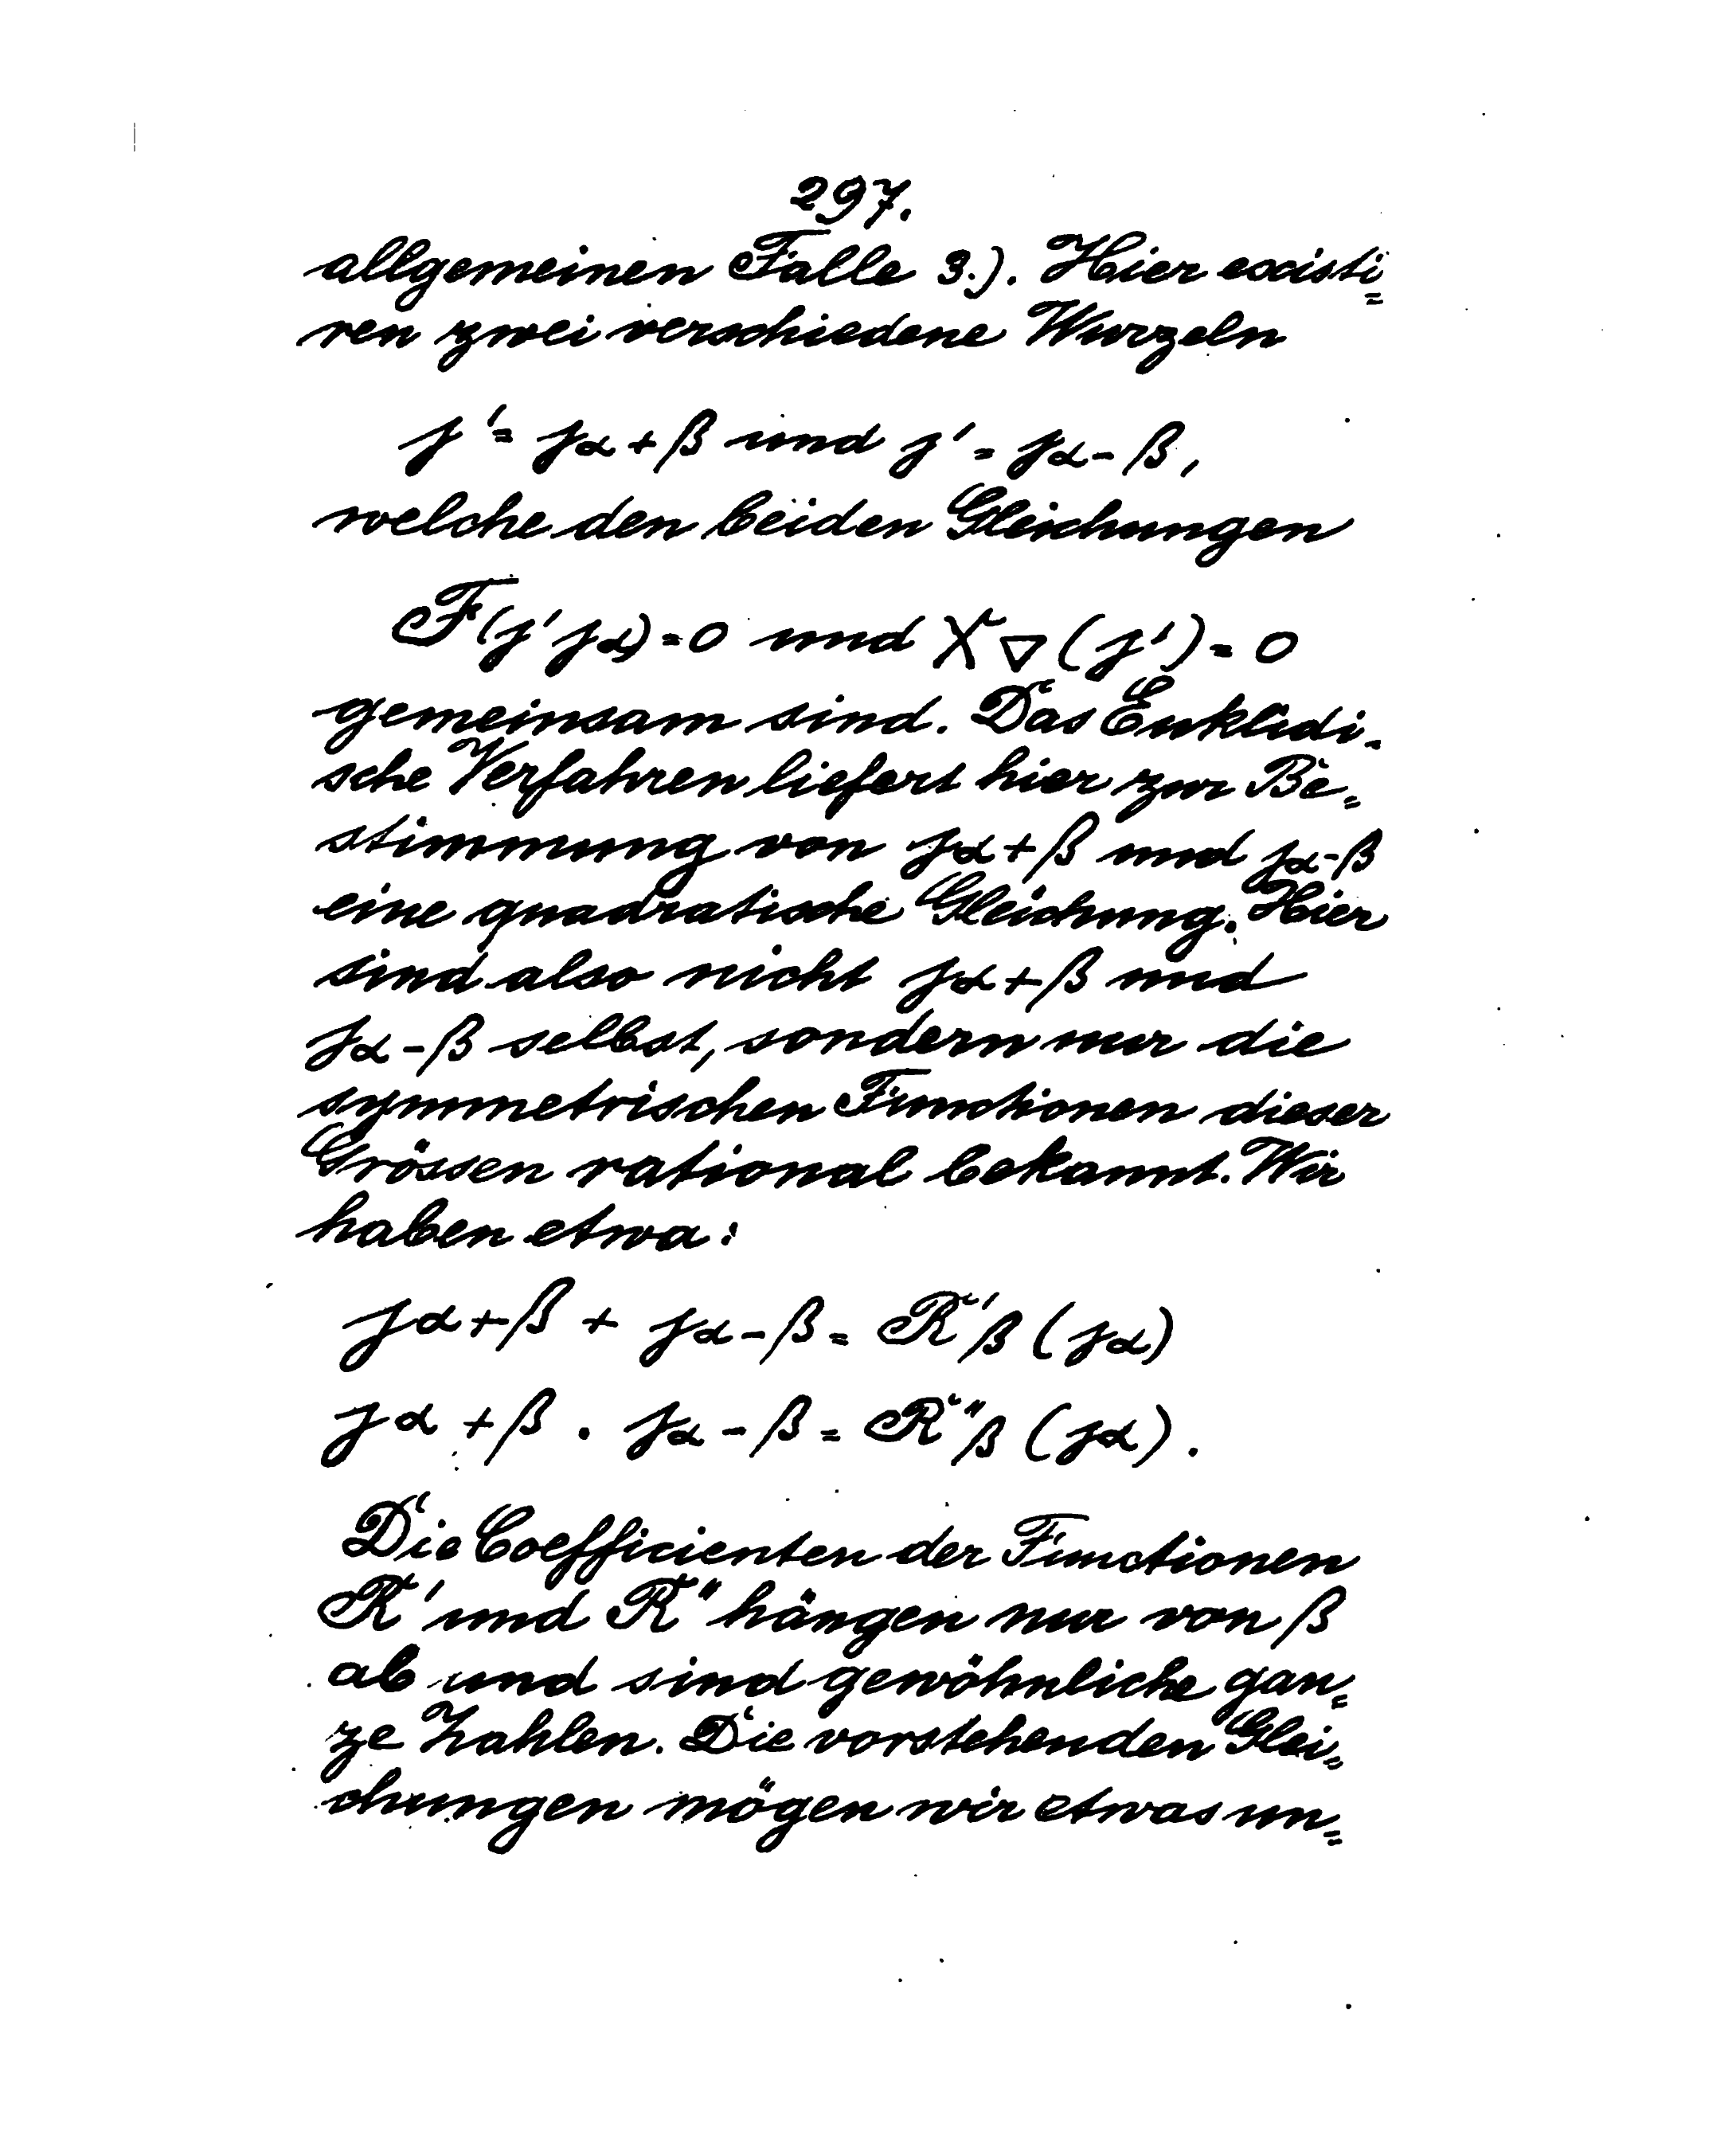 297.
allgemeinen Falle 3.). Hier existi=
ren zwei verschiedene Wurzeln
j' = jα+β und j' = jα-β,
welche den beiden Gleichungen
F(j' jα) = 0 und X∇(j') = 0
gemeinsam sind. Das Euklidi-
sche Verfahren liefert hier zur Be=
stimmung von jα+β und jα-β
eine quadratische Gleichung. Hier
sind also nicht jα+β und
jα-β selbst, sondern nur die
symmetrischen Functionen dieser
Grössen rational bekannt. Wir
haben etwa:
jα+β + jα-β = R'β (jα)
jα+β . jα-β = R''β (jα).
Die Coefficienten der Functionen
R' und R'' hängen nur von β
ab und sind gewöhnliche gan=
ze Zahlen. Die vorstehenden Glei=
chungen mögen wir etwas um=